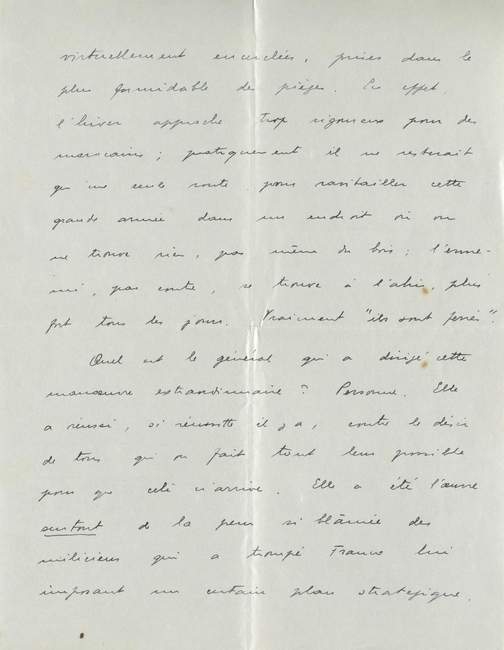 virtuellement encerclées, prises dans le
plus formidable des pièges. En effet,
l'hiver approche trop rigoureux pour des
marocains ; pratiquement il ne resterait
qu'une seule route pour ravitailler cette
grande armée dans un endroit où on
ne trouve rien, pas même du bois ; l'enne-
mi, par contre, se trouve à l'abri, plus
fort tous les jours. Vraiment "ils sont ferrés".
Quel est le général qui a dirigé cette
manœuvre extraordinaire ? Personne. Elle
a réussi, si réussite il y a, contre le désir
de tous qui on fait tout leur possible
pour que celà n'arrive. Elle a été l'œuvre
surtout de la peur si blâmée des
miliciens qui a trompé Franco lui
imposant un certain plan stratégique.